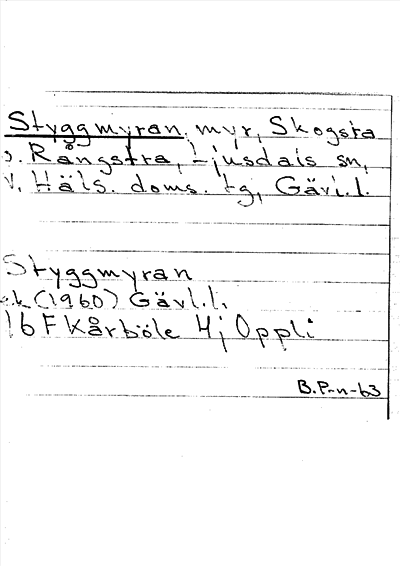 Styggmyran, myr, Skogsta
o. Rångstra, Ljusdals sn,
V. Häls. doms. tg, Gävl.l.
Styggmyran
ek (1960) Gävl.l.
16F Kårböle 4j Oppli
B.P-n-63